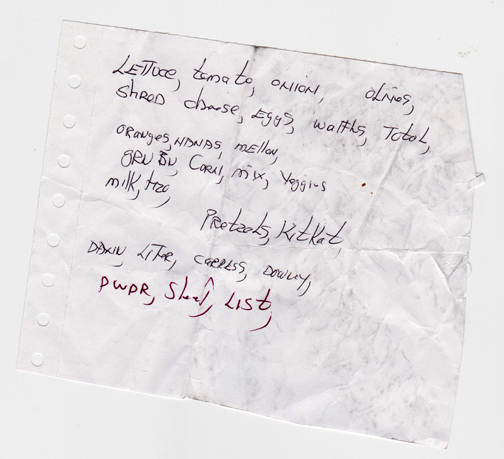 LETTuce, tomato, ONION, OLIVES,
SHRED cheese, EGGS, waffls, Total,
ORANGES, NANAS, mellon,
GRN BN, CORN, mix, Veggius
milk, H2O,
Pretzels, KitKat,
LITER, CARESS, DOWNY,
PWDR, LIST,